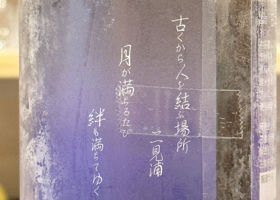 古くから人を結ぶ場所
二見浦
月が満ちるたび
絆も満ちてゆく